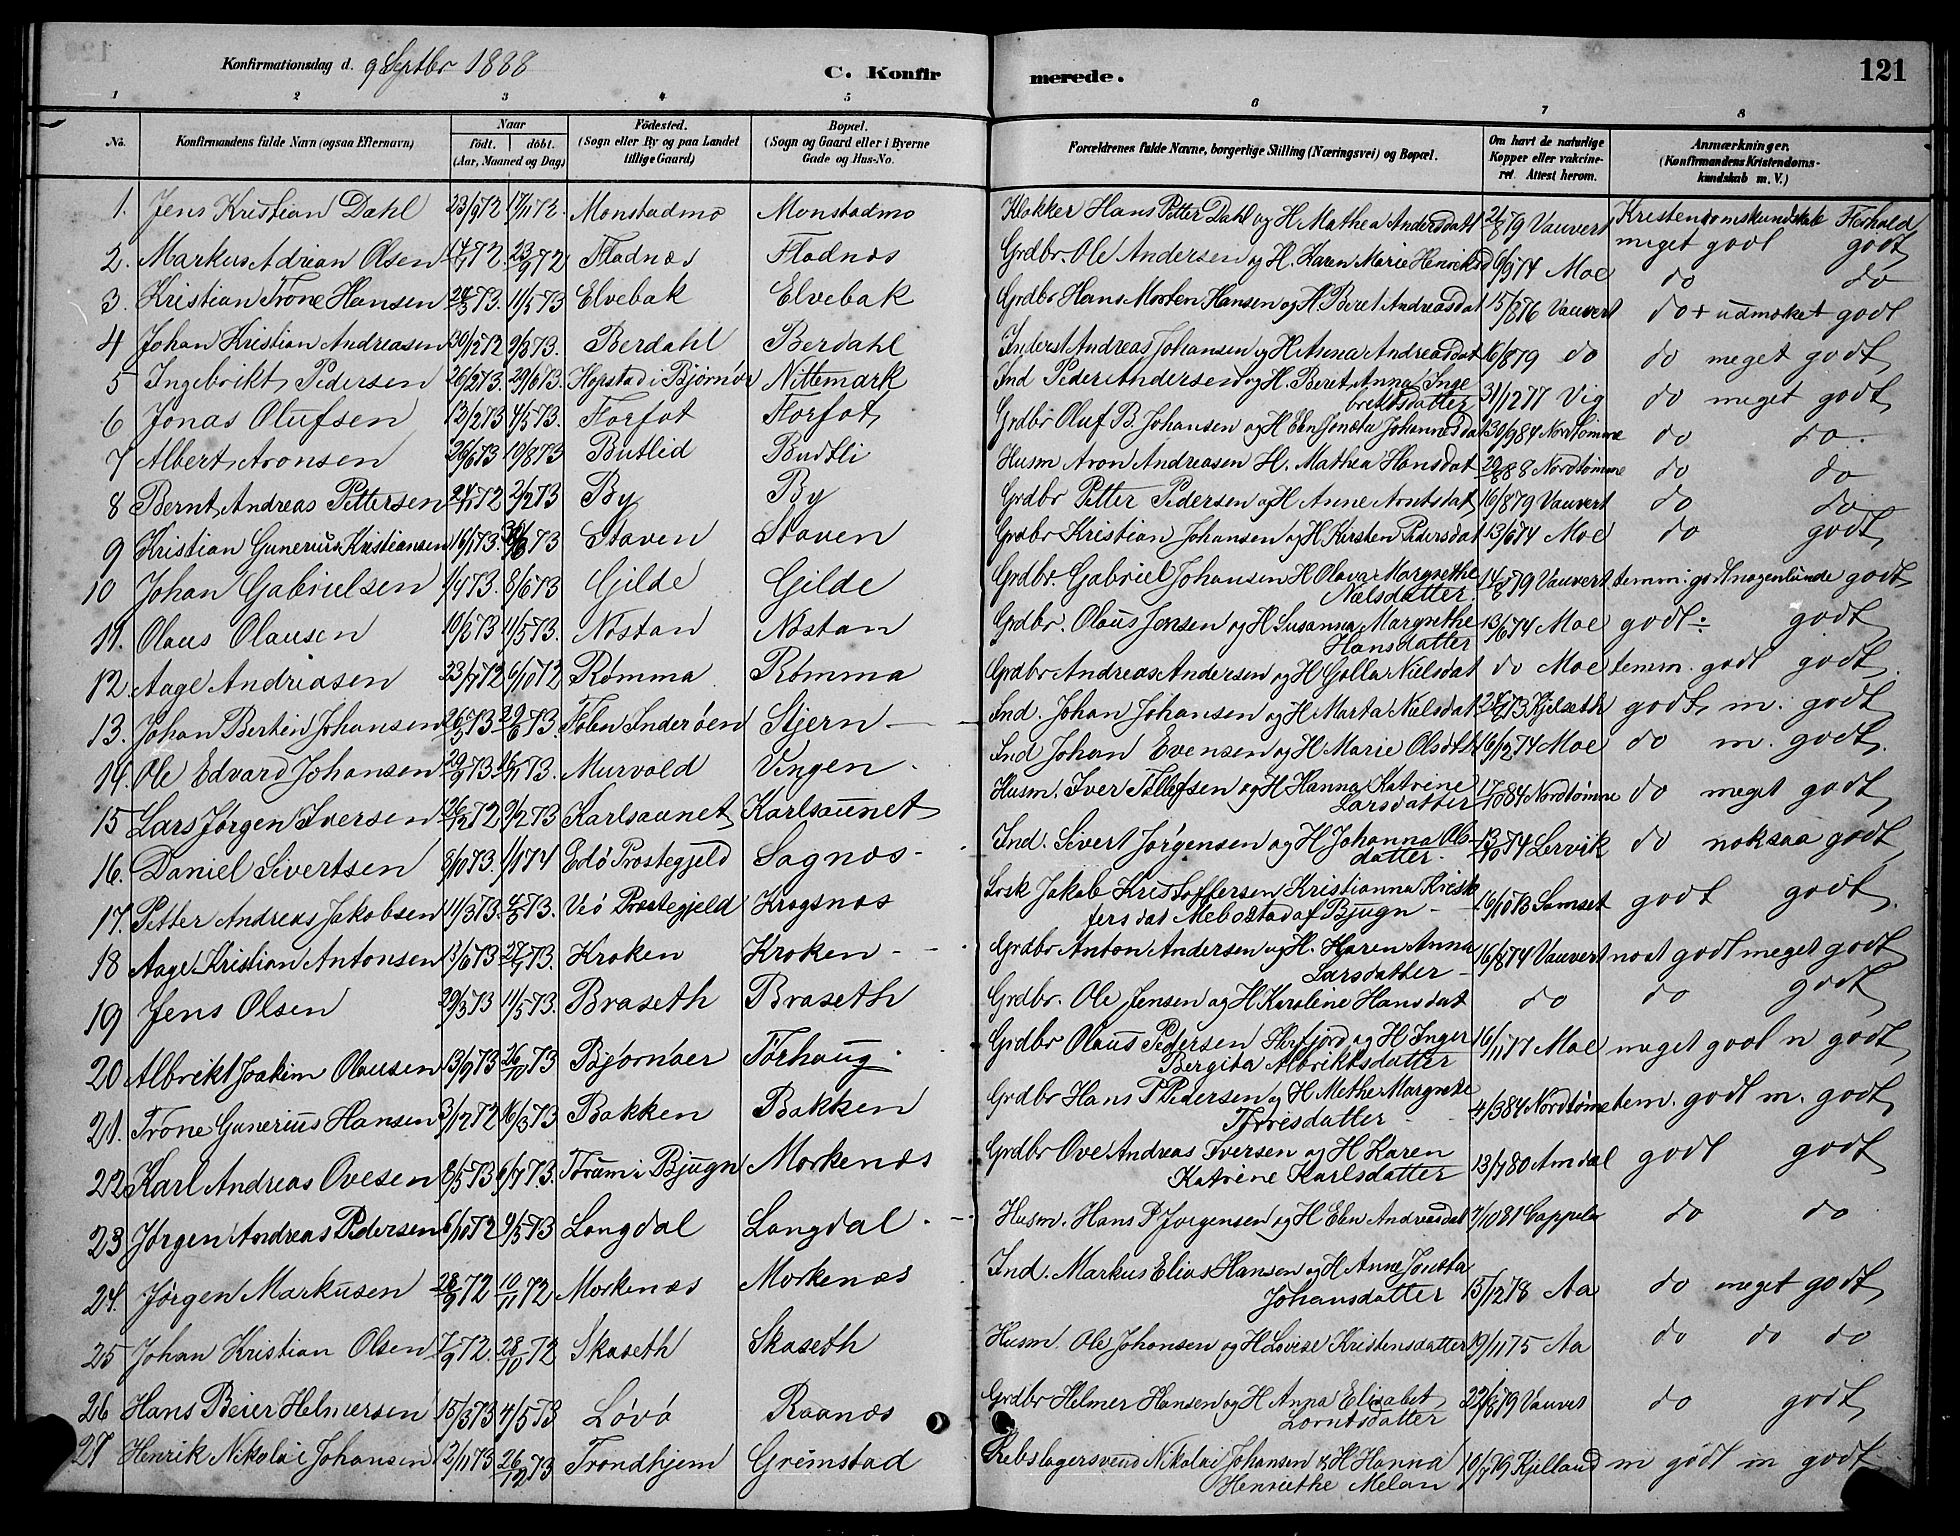 Konfirmationsdag d. 9 Septbr 1888
C. Konfirmerede.
121
1 2 3 4 5 6 7 8
No. Konfirmandens fulde Navn (ogsaa Efternavn) Naar født. døbt. (Aar, Maaned og Dag) Födested. (Sogn eller By og paa Landet tillige Gaard) Bopæl. (Sogn og Gaard eller i Byerne Gade og Hus-No. Forældrenes fulde Navne, borgerlige Stilling (Næringsvei) og Bopæl. Om havt de naturlige Kopper eller vakcineret. Attest herom. Anmærkninger. (Konfirmandens Kristendomskundskab m. V.)
Kristendomskundskab Forhold
1. Jens Kristian Dahl 23/9 72 17/11 72. Monstadmo Monstadmo Klokker Hans Petter Dahl og H Mathea Andersdatt 2/8 79 Vauvert meget godt godt
2. Markus Adrian Olsen 14/7 72. 23/9 72 Fladnæs Fladnæs Grdbr. Ole Andersen og H. Karen Marie Henriksd 6/9 74 Moe do do
3 Kristian Trone Hansen 24/3 73. 11/5 73 Elvebak Elvebak Grdbr Hans Morten Hansen og H Beret Andreasdat 15/8 76 Vauvert do + udmærket godt
4 Johan Kristian Andreasen 30/12 72 9/3 73. Berdahl Berdahl Inderst Andreas Johansen og H Anna Andreasdat 16/8 79 do do meget godt
5 Ingebrikt Pedersen 26/2 73. 29/6 73. Hopstad i Bjørnør Nittemark Ind Peder Andersen og H. Beret Anna Ingebrektsdatter 31/12 77 Vig do meget godt
6 Jonas Olufsen 12/2 73 4/5 73. Forfot Forfot Grdbr Oluf B. Johansen og H Elen Jonetta Johannesdat 30/9 84 Nordtømme do do.
7 Albert Aronsen 26/6 73 10/8 73 Butlid Budtli Husm Aron Andreasen H. Mathea Hansdat 29/8 88 Nordtømme do do
8 Bernt Andreas Pettersen 24/11 72 2/2 73 By By Grdbr Petter Pedersen og H Anne Arntsdat 16/8 79 Vauvert do do
9 Kristian Gunerius Kristiansen 16/1 73. 30/3 73 Staven Staven Grdbr Kristian Johansen og H Kirsten Pedersdat 13/6 74 Moe do godt
10 Johan Gabrielsen 1/4 73. 8/6 73 Gilde Gilde Grdbr. Gabriel Johansen H Olava Margrethe Nelsdatter. 14/8 79 Vauvert temm: godt nogenlunde godt
11. Olaus Olausen 10/2 73 11/5 73. Nøstan Nøstan Grdbr. Olaus Jonsen og H Susanna Margrethe Hansdatter 13/6 74 Moe godt: godt
12. Aage Andreasen 23/7 72 6/10 72 Rømma Rømma Grdbr Andreas Andersen og H Golla Nielsdat do Moe temm. godt godt
13. Johan Berteus Johansen 26/3 73 29/6 73. Foben Inderøen Stjern Ind. Johan Johansen og H Marta Nielsdat 24/8 73 Kjelseth godt m. godt
14. Ole Edvard Johansen 29/9 73. 16/11 73. Murvold Vingen Ind Johan Evensen og H Marie Olsdtt 16/12 74 Moe do m. godt
15 Lars Jørgen Iversen 26/12 72 9/2 73 Karlsaunet Karlsaunet Husm. Iver Tollefsen og H Hanna Katrine Larsdatter 17/10 84 Nordtømme do meget godt
16. Daniel Sivertsen 8/10 73. 1/1 74 Edø Prestegjeld Sagnæs Ind. Sivert Jørgensen og H Johanna Olsdatter 13/10 74 Lervik do noksaa godt
17. Petter Andreas Jakobsen 11/3 73. 4/5 73. Veø Prestegjeld Krogsnæs Jakob Kristoffersen Kristianna Kristofersdat Mebostad af Bjugn 16/10 73 Samset godt godt.
18 Aage Kristian Antonsen 13/6 73 27/7 73. Kroken Kroken Grdbr Anton Andersen og H. Karen Anna Larsdatter 16/8 74 Vauvert næst godt meget godt
19 Jens Olsen 29/3 73 11/5 73. Braseth Braseth Grdbr. Ole Jensen og H Karoline Hansdat do do godt
20 Albrikt Joakim Olausen 13/9 73 26/10 73 Bjørnøer Forhaug Grdbr Olaus Pedersen Høfjord og H Inger Bergita Albriktsdatter 16/11 77 Moe meget godt n godt
21. Trone Gunerius Hansen 3/12 72 16/3 73 Bakken Bakken Grdbr Hans P Pedersen og H Methe Margrete Torresdatter 4/3 84 Nordtømme tem. godt m. godt
22 Karl Andreas Ovesen 8/5 73 6/7 73. Trum i Bjugn Morkenæs Grdbr Ove Andreas Iversen og H Karen Katrine Karlsdatter 13/7 80 Amdal godt godt
23 Jørgen Andreas Pedersen 6/10 72 9/3 73 Langdal Langdal Husm. Hans P Jørgensen og H Elen Andreasdat 7/10 81 Cappelen do do
24. Jørgen Markusen 28/9 72 10/11 72 Morkenæs Morkenæs Ind. Markus Elias Hansen og H Anne Jonetta Johansdatter 15/12 78 Aa do meget godt
25 Johan Kristian Olsen 7/9 72. 28/10 72 Skaseth Skaseth Husm. Ole Johansen og H Lovise Kristensdatter 19/11 75 Aa do do do
26 Hans Beier Helmersen 15/3 73 4/5 73 Løvø Raanæs Grdbr Helmer Hansen og H Anna Elisabet Lorntsdatter 22/8 79 Vauvert do godt
27 Henrik Nikolai Johansen 2/11 73 26/12 73 Trondhjem Grimstad Rebslagersvend Nikolai Johansen & H Hanna Henriethe Melan 10/7 79 Kjelland m godt m godt